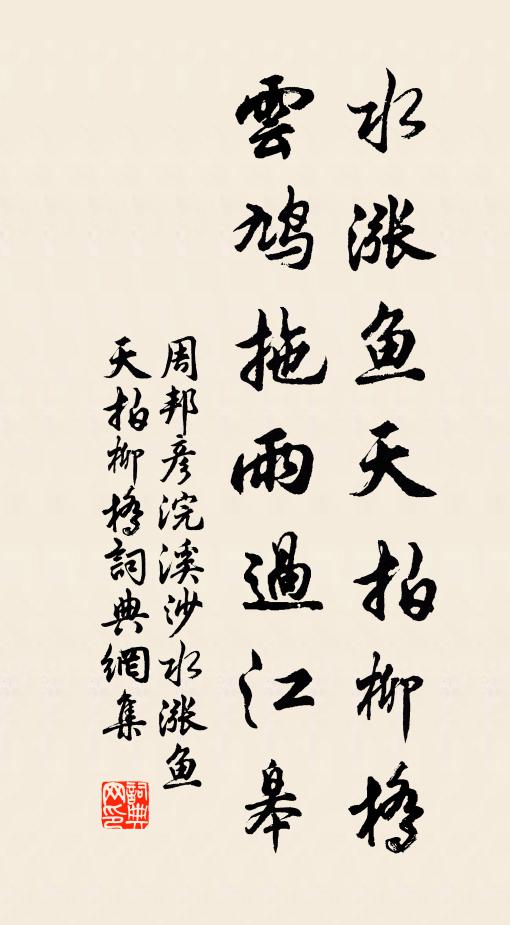 水漲鱼天拍柳橋
雲鸠拖雨過江皋
周邦彦浣溪沙水漲鱼
天拍柳橋詞典網集
詞典网印